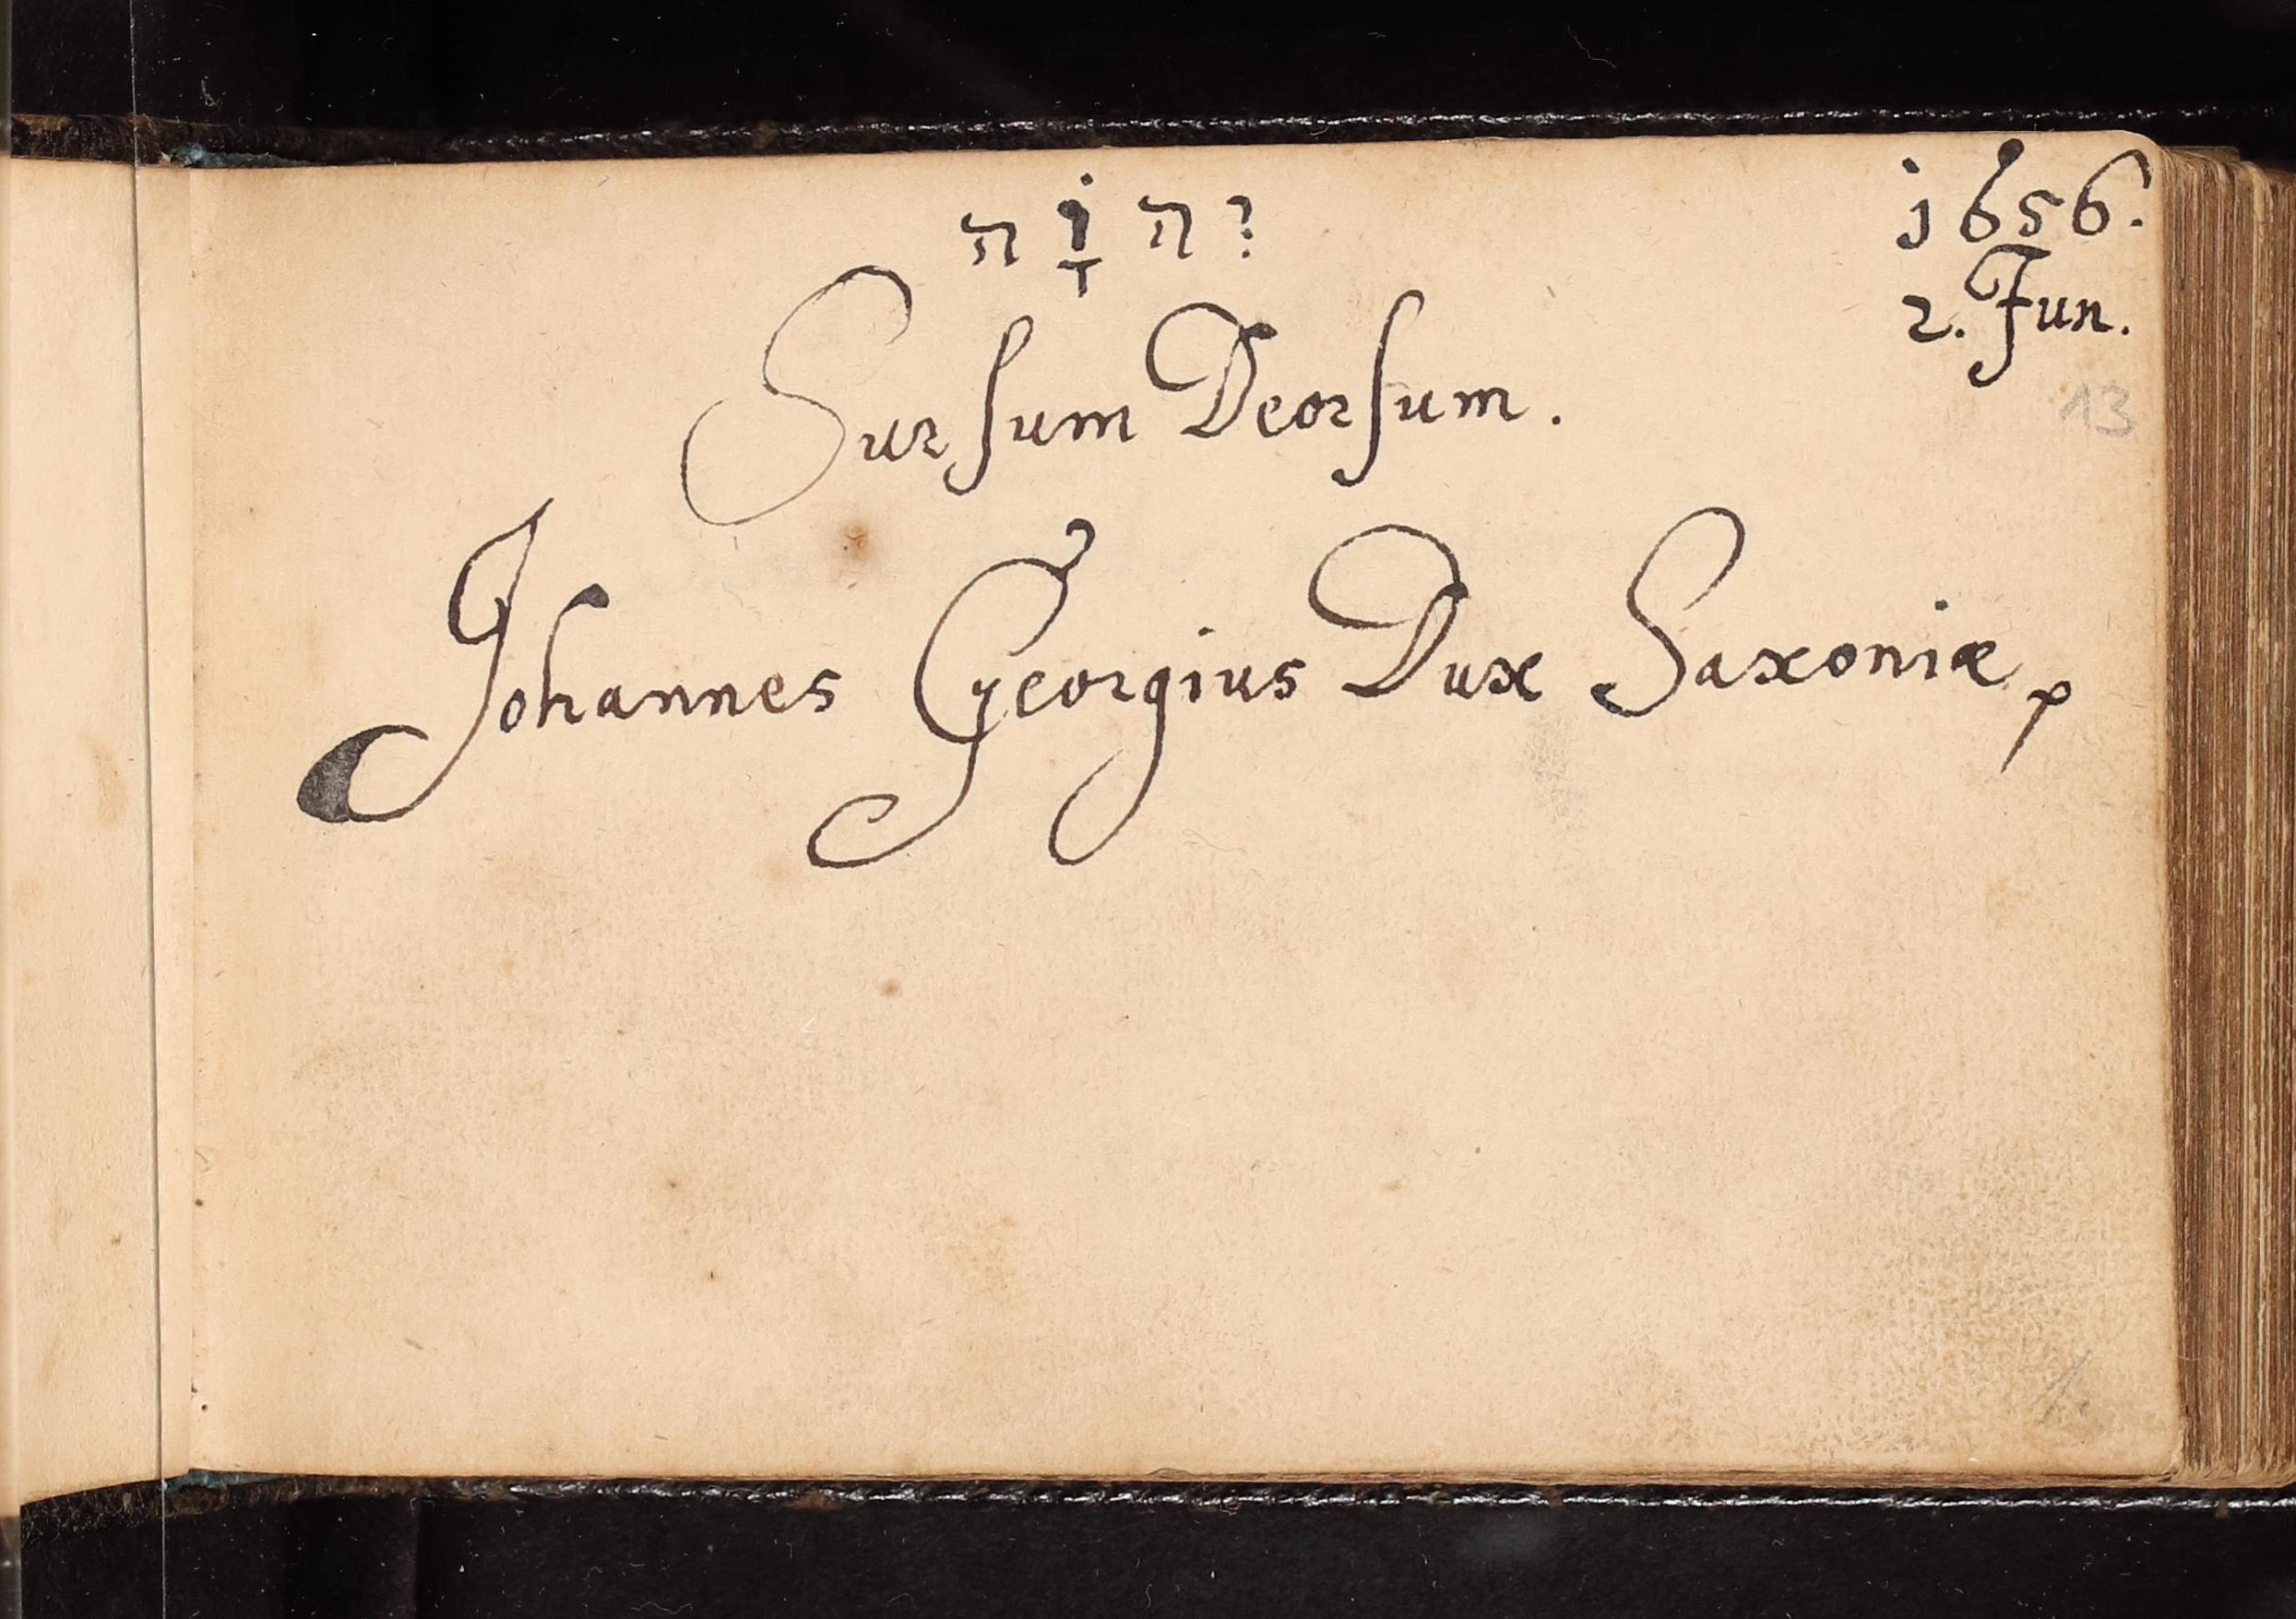 יְהוָֹה
1656.
2. Jun.
13
Sursum Deorsum.
Johannes Georgius Dux Saxoniæ p